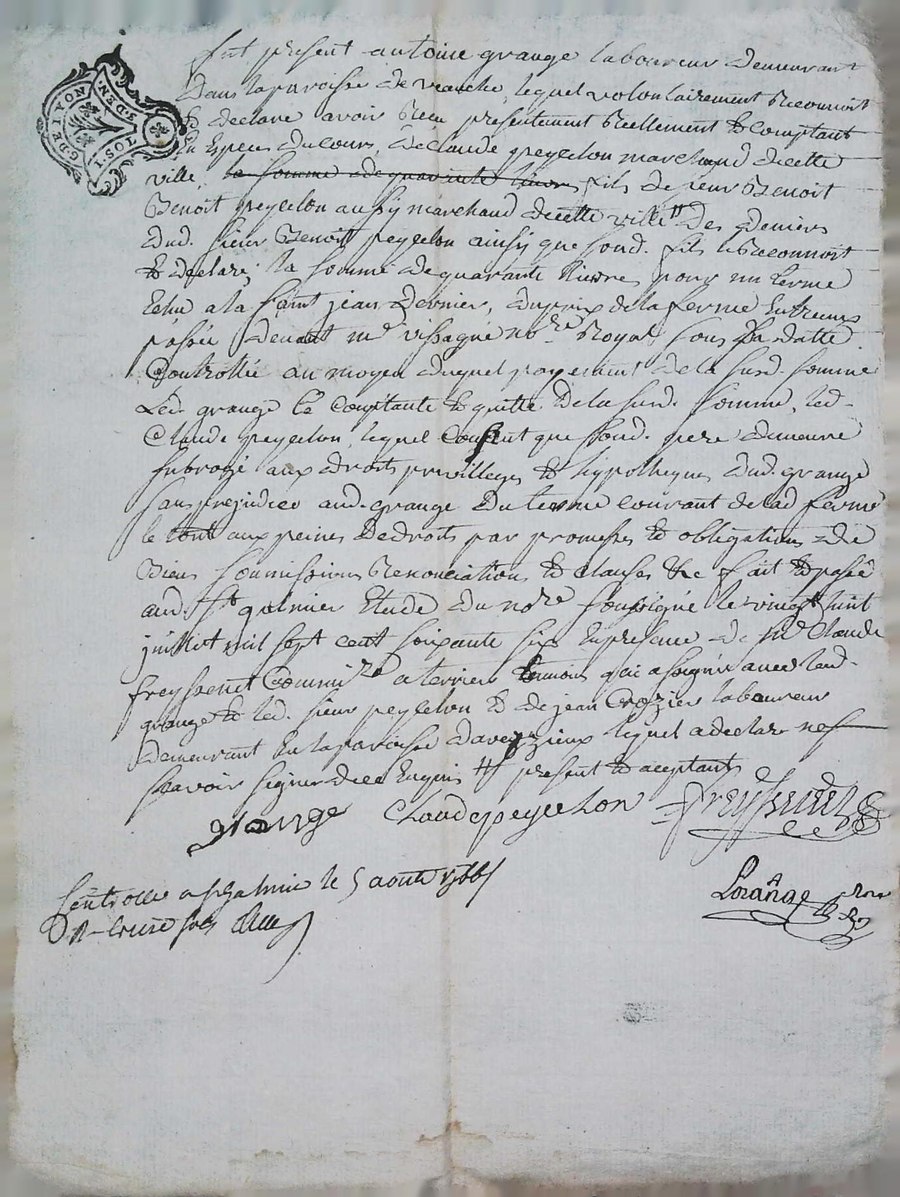 G. DE LYON
S. DEN.
1 SOL
fut present antoine grange laboureur demeurant
dans la paroisse de veauche, lequel volontairement Reconnoit
& declare avoir Reçu presentement Reellement & comptant
En Especes du cours, de claude peyechon marchand de cette
ville, la somme de quarante livres fils de sieur Benoit
Benoit peyechon aussy marchand de cette ville des deniers
dud. sieur Benoit peyechon ainsy que sond. fils le Reconnoit
& declare, la somme de quarante livres pour un terme
Echu a la saint jean dernier, du prix de la ferme Entreux
passée devant me vissaguet nore Royal, sous sa datte
Controllée au moyen duquel payement de la susd. somme
Led. grange le Comptante & quitte de la susd. somme, led.
Claude peyechon, lequel Consent que sond. pere demeure
subrogé aux droits privilleges & hyppotheques dud. grange
sans prejudice aud. grange Du terme courant de lad. ferme
le tout aux peines de droits par promesses & obligations de
Biens soumissions Renonciations & clauses &c fait & passé
aud. st galmier Etude du nore soussigné le vingt huit
juillet mil sept cent soixante six En presence de sr Claude
freyssenet Commire a terrier temoins qui a signé avec led.
grange & led. sieur peyechon & de jean Crozier laboureur
demeurant En la paroisse d'aveyzieux lequel a declaré ne
sçavoir signer de ce Enquis present & aceptant
grange Claude peyechon Freyssenet
Controllé a st galmier le 5 aoust 1766
Lorange